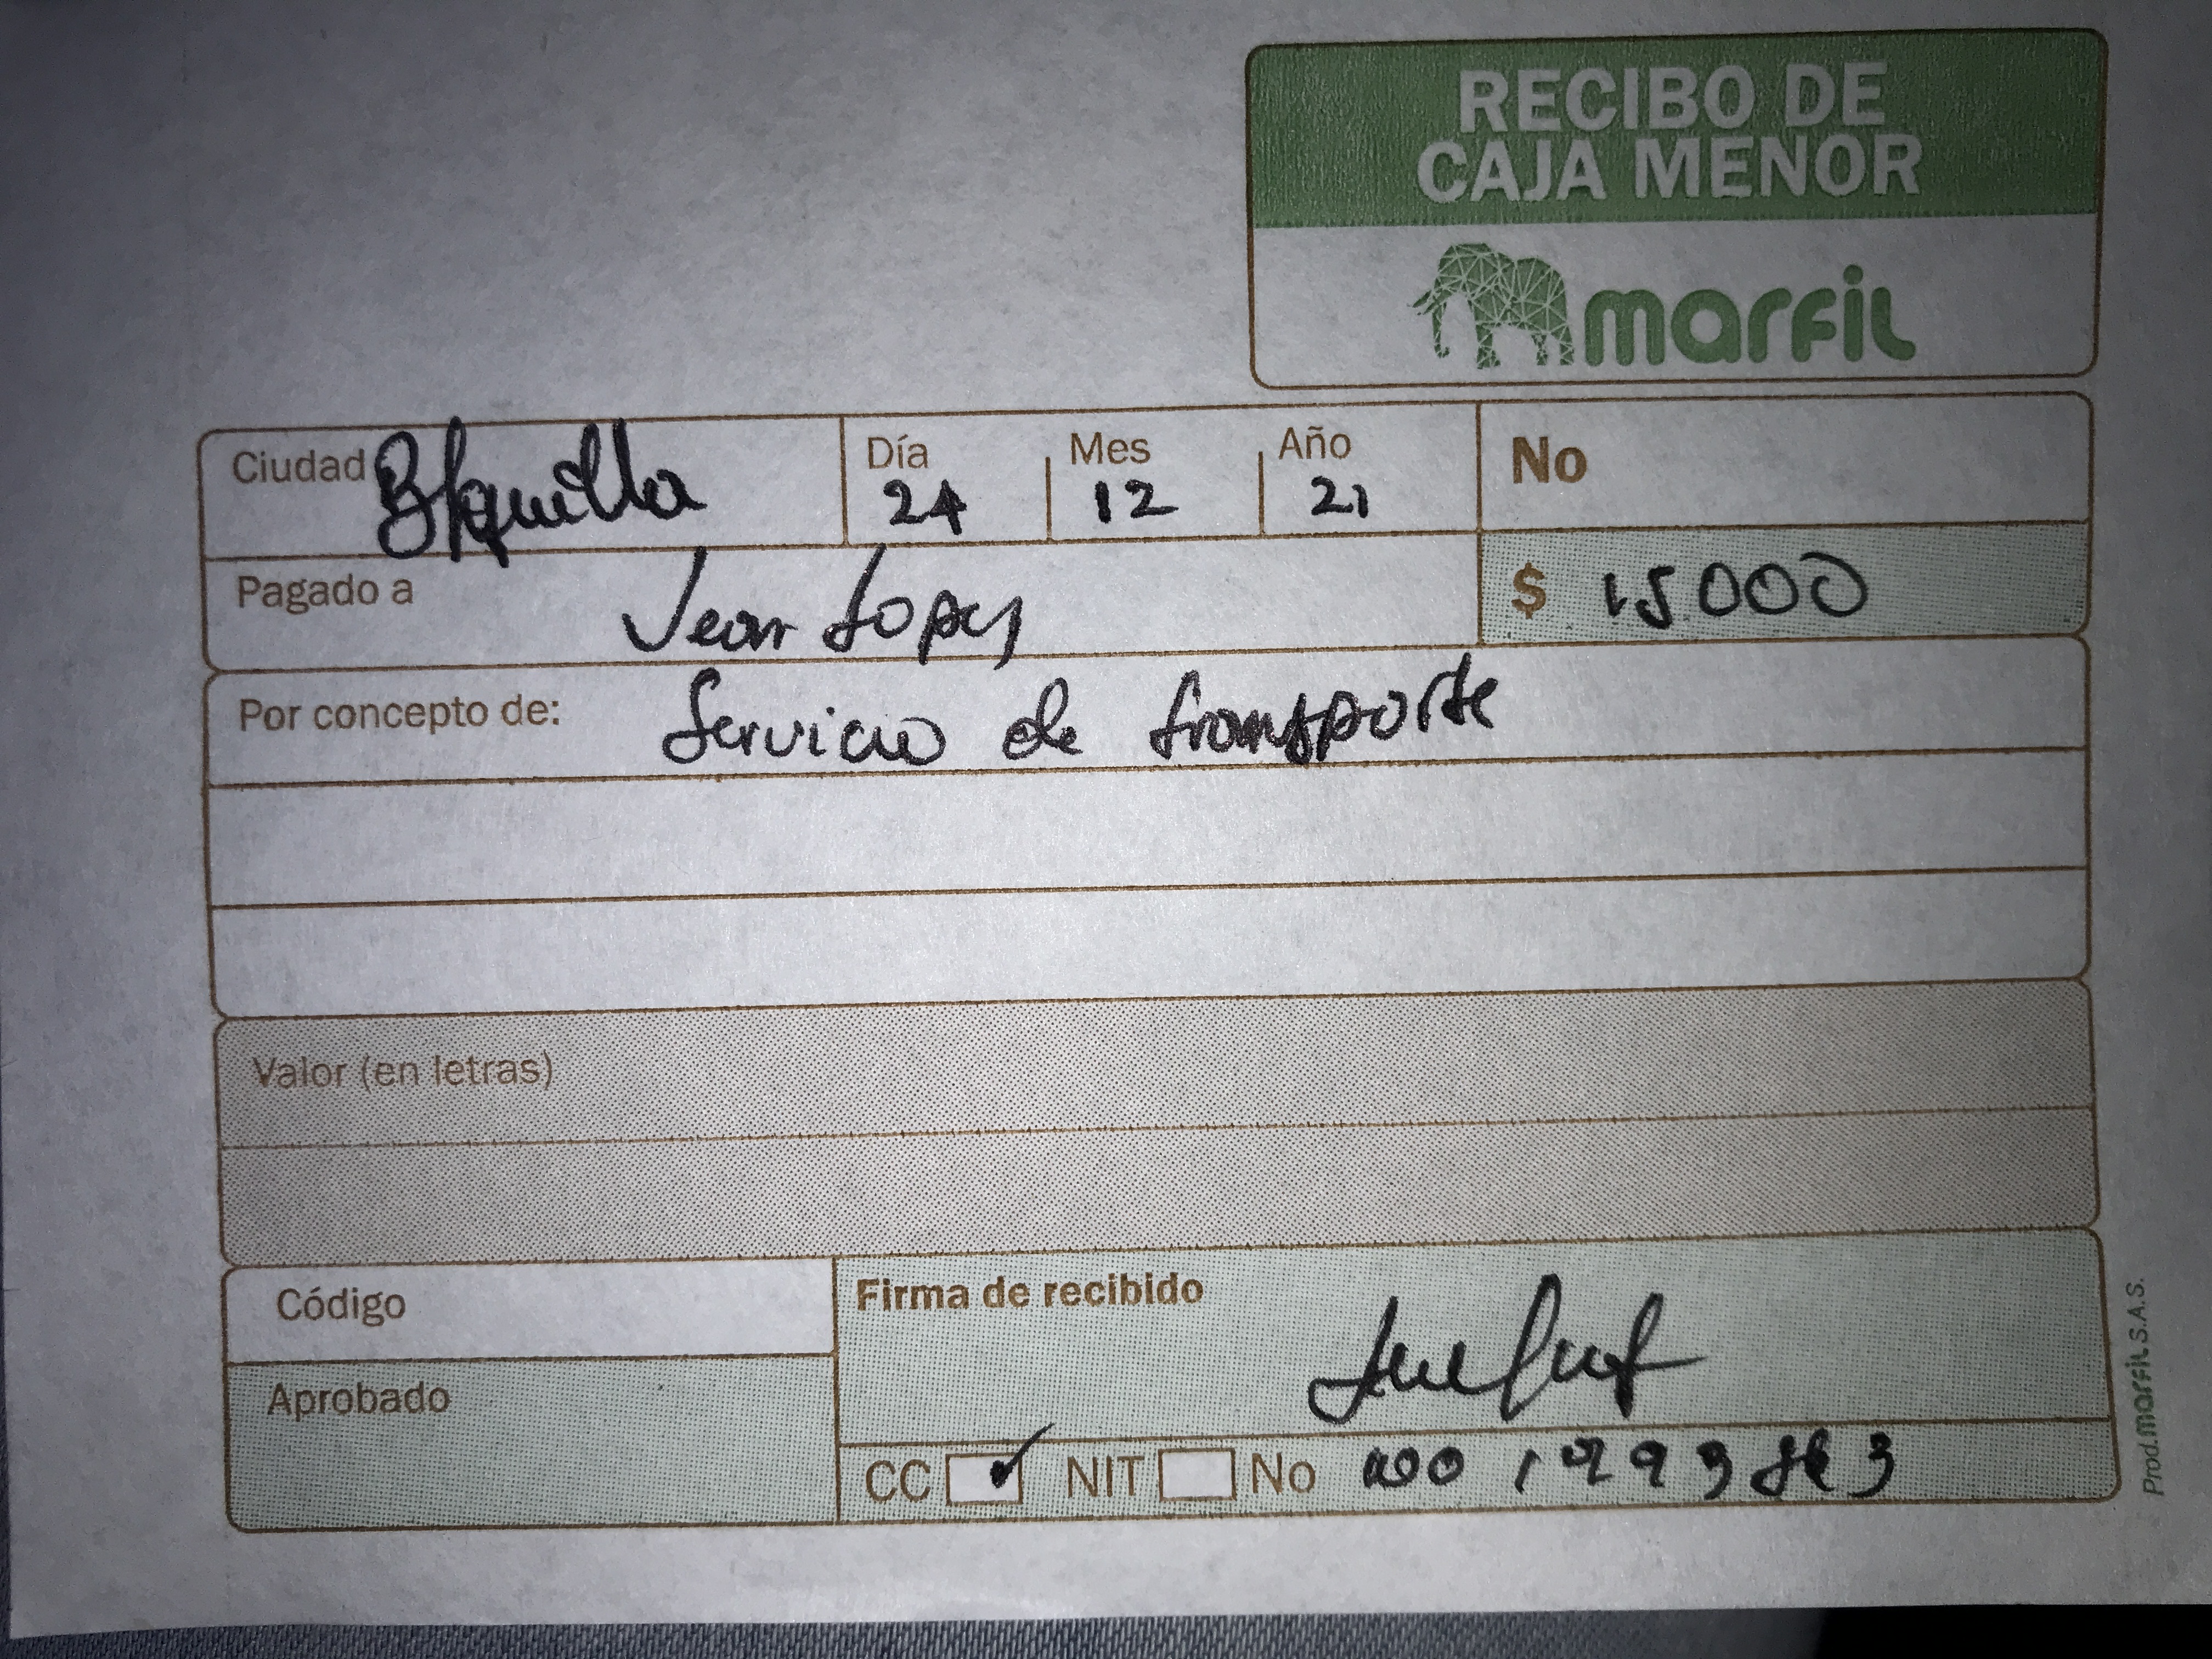 RECIBO DE
CAJA MENOR
marfil
Ciudad B/quilla Día 24 Mes 12 Año 21 No
Pagado a Jean Lopez $ 15.000
Por concepto de: Servicio de transporte
Valor (en letras)
Código
Firma de recibido
Aprobado
CC ✓ NIT No
Prod. marfil S.A.S.